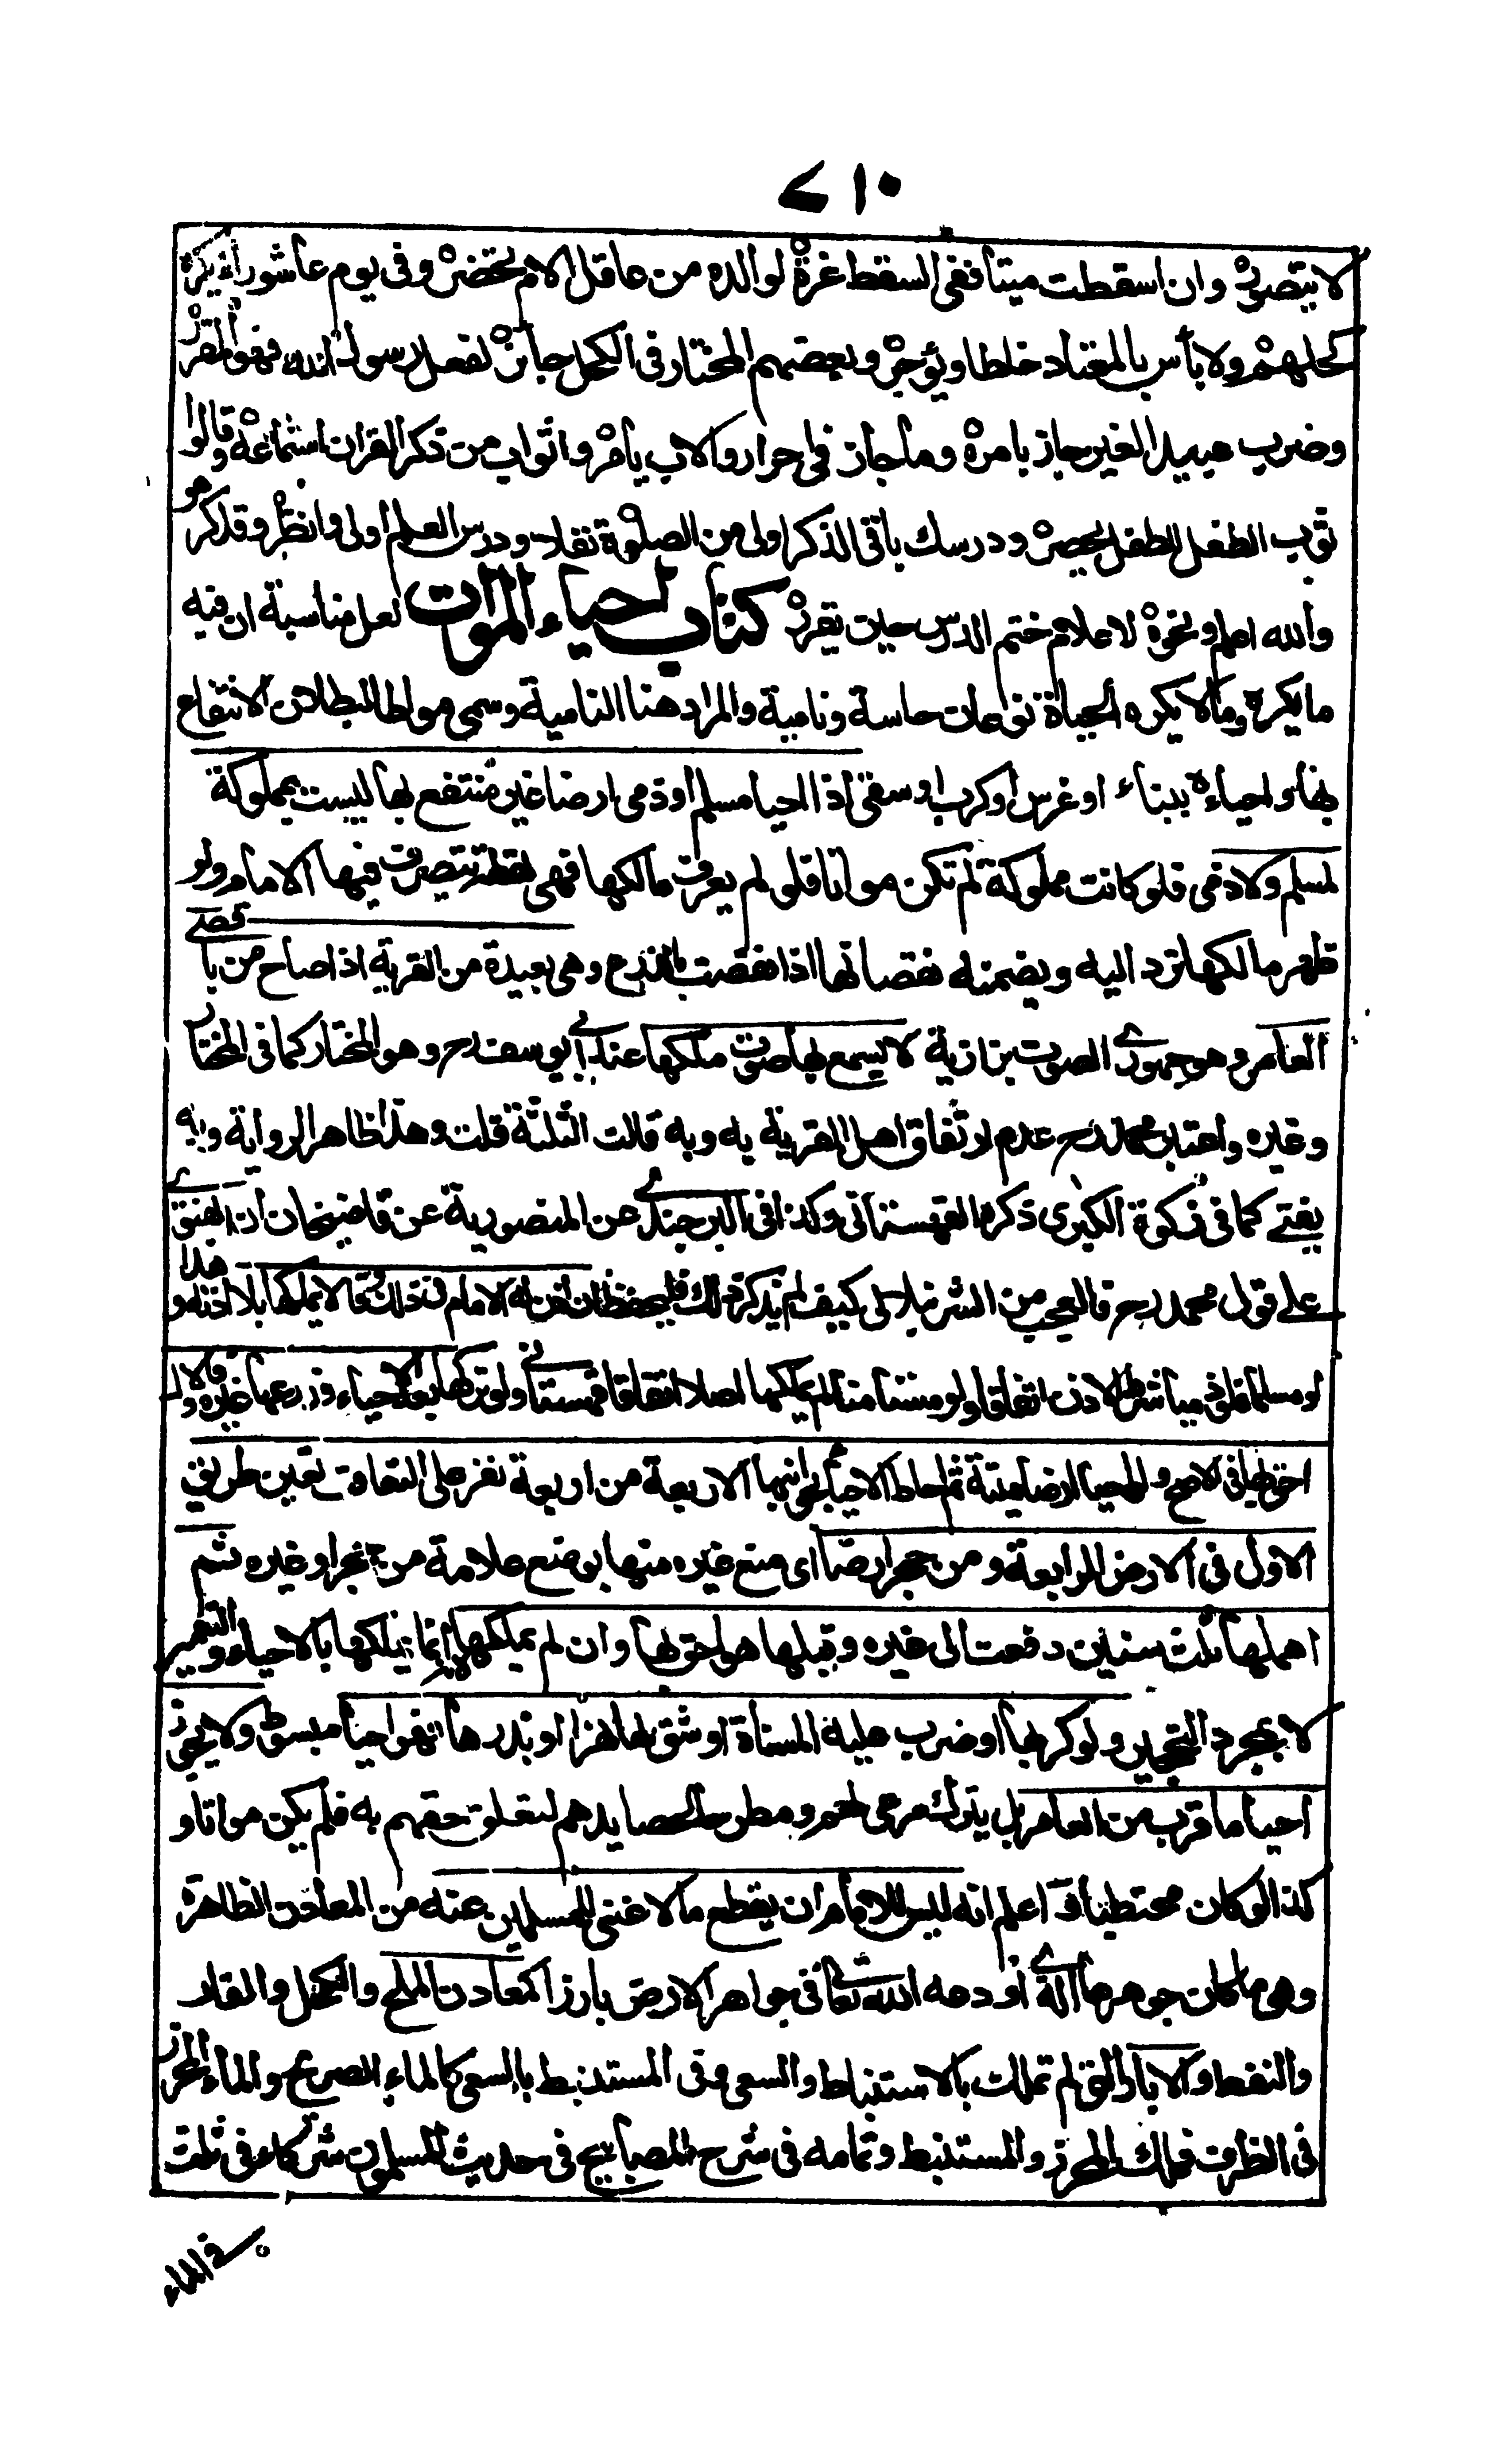 ٧١٠
لا يتصور وان اسقطت ميتا ففى السقط غرة لوالده من عاقل الام تحضر وفى يوم عاشوراء يكره
كحلهم ولا بأس بالمعتاد خلطا ويؤجر وبعضهم المختار فى الكحل جائز لفعل رسول الله فهو المقرر
وضرب عبيد الغير جاز بامره وما جاز فى احرار والاب يأمر واثواب من ذكر القران استماعه وقالوا
ثوب الطفل للطفل يحصر ودرسك باقى الذكر اولى من الصلوة نفلا ودرس العلم اولى وانظر وقد كرهوا
والله اعلم ونحوه لاعلام ختم الدرس حين يقرر كتاب احياء الموات لعل مناسبة ان فيه
ما يكره وما لا يكره الحياة نوعان حاسة ونامية والمراد هنا النامية وسمى مواتا لبطلان الانتفاع
بها واحياءه ببناء او غرس او كرب او سقى اذا احيا مسلم او ذمى ارضا غير منتفع بها ليست بمملوكة
لمسلم ولا ذمى فلو كانت مملوكة لم تكن مواتا فلو لم يعرف مالكها فهى لقطة يتصرف فيها الامام ولو
ظهر مالكها ترد اليه ويضمن له نقصانها اذا نقصت بالزرع وهى بعيدة من القرية اذا صاح من باقصى
العامر وهو جهورى الصوت بزازية لا يسمع بها صوت ملكها عند ابى يوسف رح وهو المختار كما فى المختار
وغيره واعتبر محمد رح عدم ارتفاق اهل القرية به وبه قالت الثلثة قلت وهذا ظاهر الرواية وبه
يفتى كما فى زكوة الكبرى ذكره القهستانى وكذا فى البرجندى عن المنصورية عن قاضيخان ان الفتوى
على قول محمد رح فالعجب من الشرنبلالى كيف لم يذكر ذلك فليحفظ ان اذن له الامام فى ذلك وقالا يملكها بلا اذنه وهذا
لو مسلما فلو ذميا شرط الاذن اتفاقا ولو مستأمنا لم يملكها اصلا اتفاقا قهستانى ولو تركها بعد الاحياء وزرعها غيره فالاول
احق بها فى الاصح ولو احيا ارضا ميتة ثم احاط الاحياء بجوانبها الاربعة من اربعة نفر على التعاقب تعين طريق
الاول فى الارض الرابعة ومن حجر ارضا اى منع غيره منها بوضع علامة من حجر او غيره ثم
اهملها ثلث سنين دفعت الى غيره وقبلها هو احق بها وان لم يملكها لانه انما يملكها بالاحياء والتعمير
لا بمجرد التحجير ولو كربها او ضرب عليها المسناة او شق لها نهرا او بذرها فهو احياء مبسوط ولا يجوز
احياء ما قرب من العامر بل يترك مرعى لهم ومطرحا لحصايدهم لتعلق حقهم به فلم يكن مواتا و
كذا لو كان محتطبا و اعلم انه ليس للامام ان يقطع ما لا غنى للمسلمين عنه من المعادن الظاهرة
وهى ما كان جوهرها الذى اودعه الله تعالى فى جواهر الارض بارزا كمعادن الملح والكحل والقار
والنفط والابار التى لم تملك بالاستنباط والسعى وفى المستنبط بالسعى كالماء الصريح والماء المحرز
فى الظرف فملك للمحرز والمستنبط وتمامه فى شرح المصابيح فى حديث المسلمون شركاء فى ثلث
فى الماء